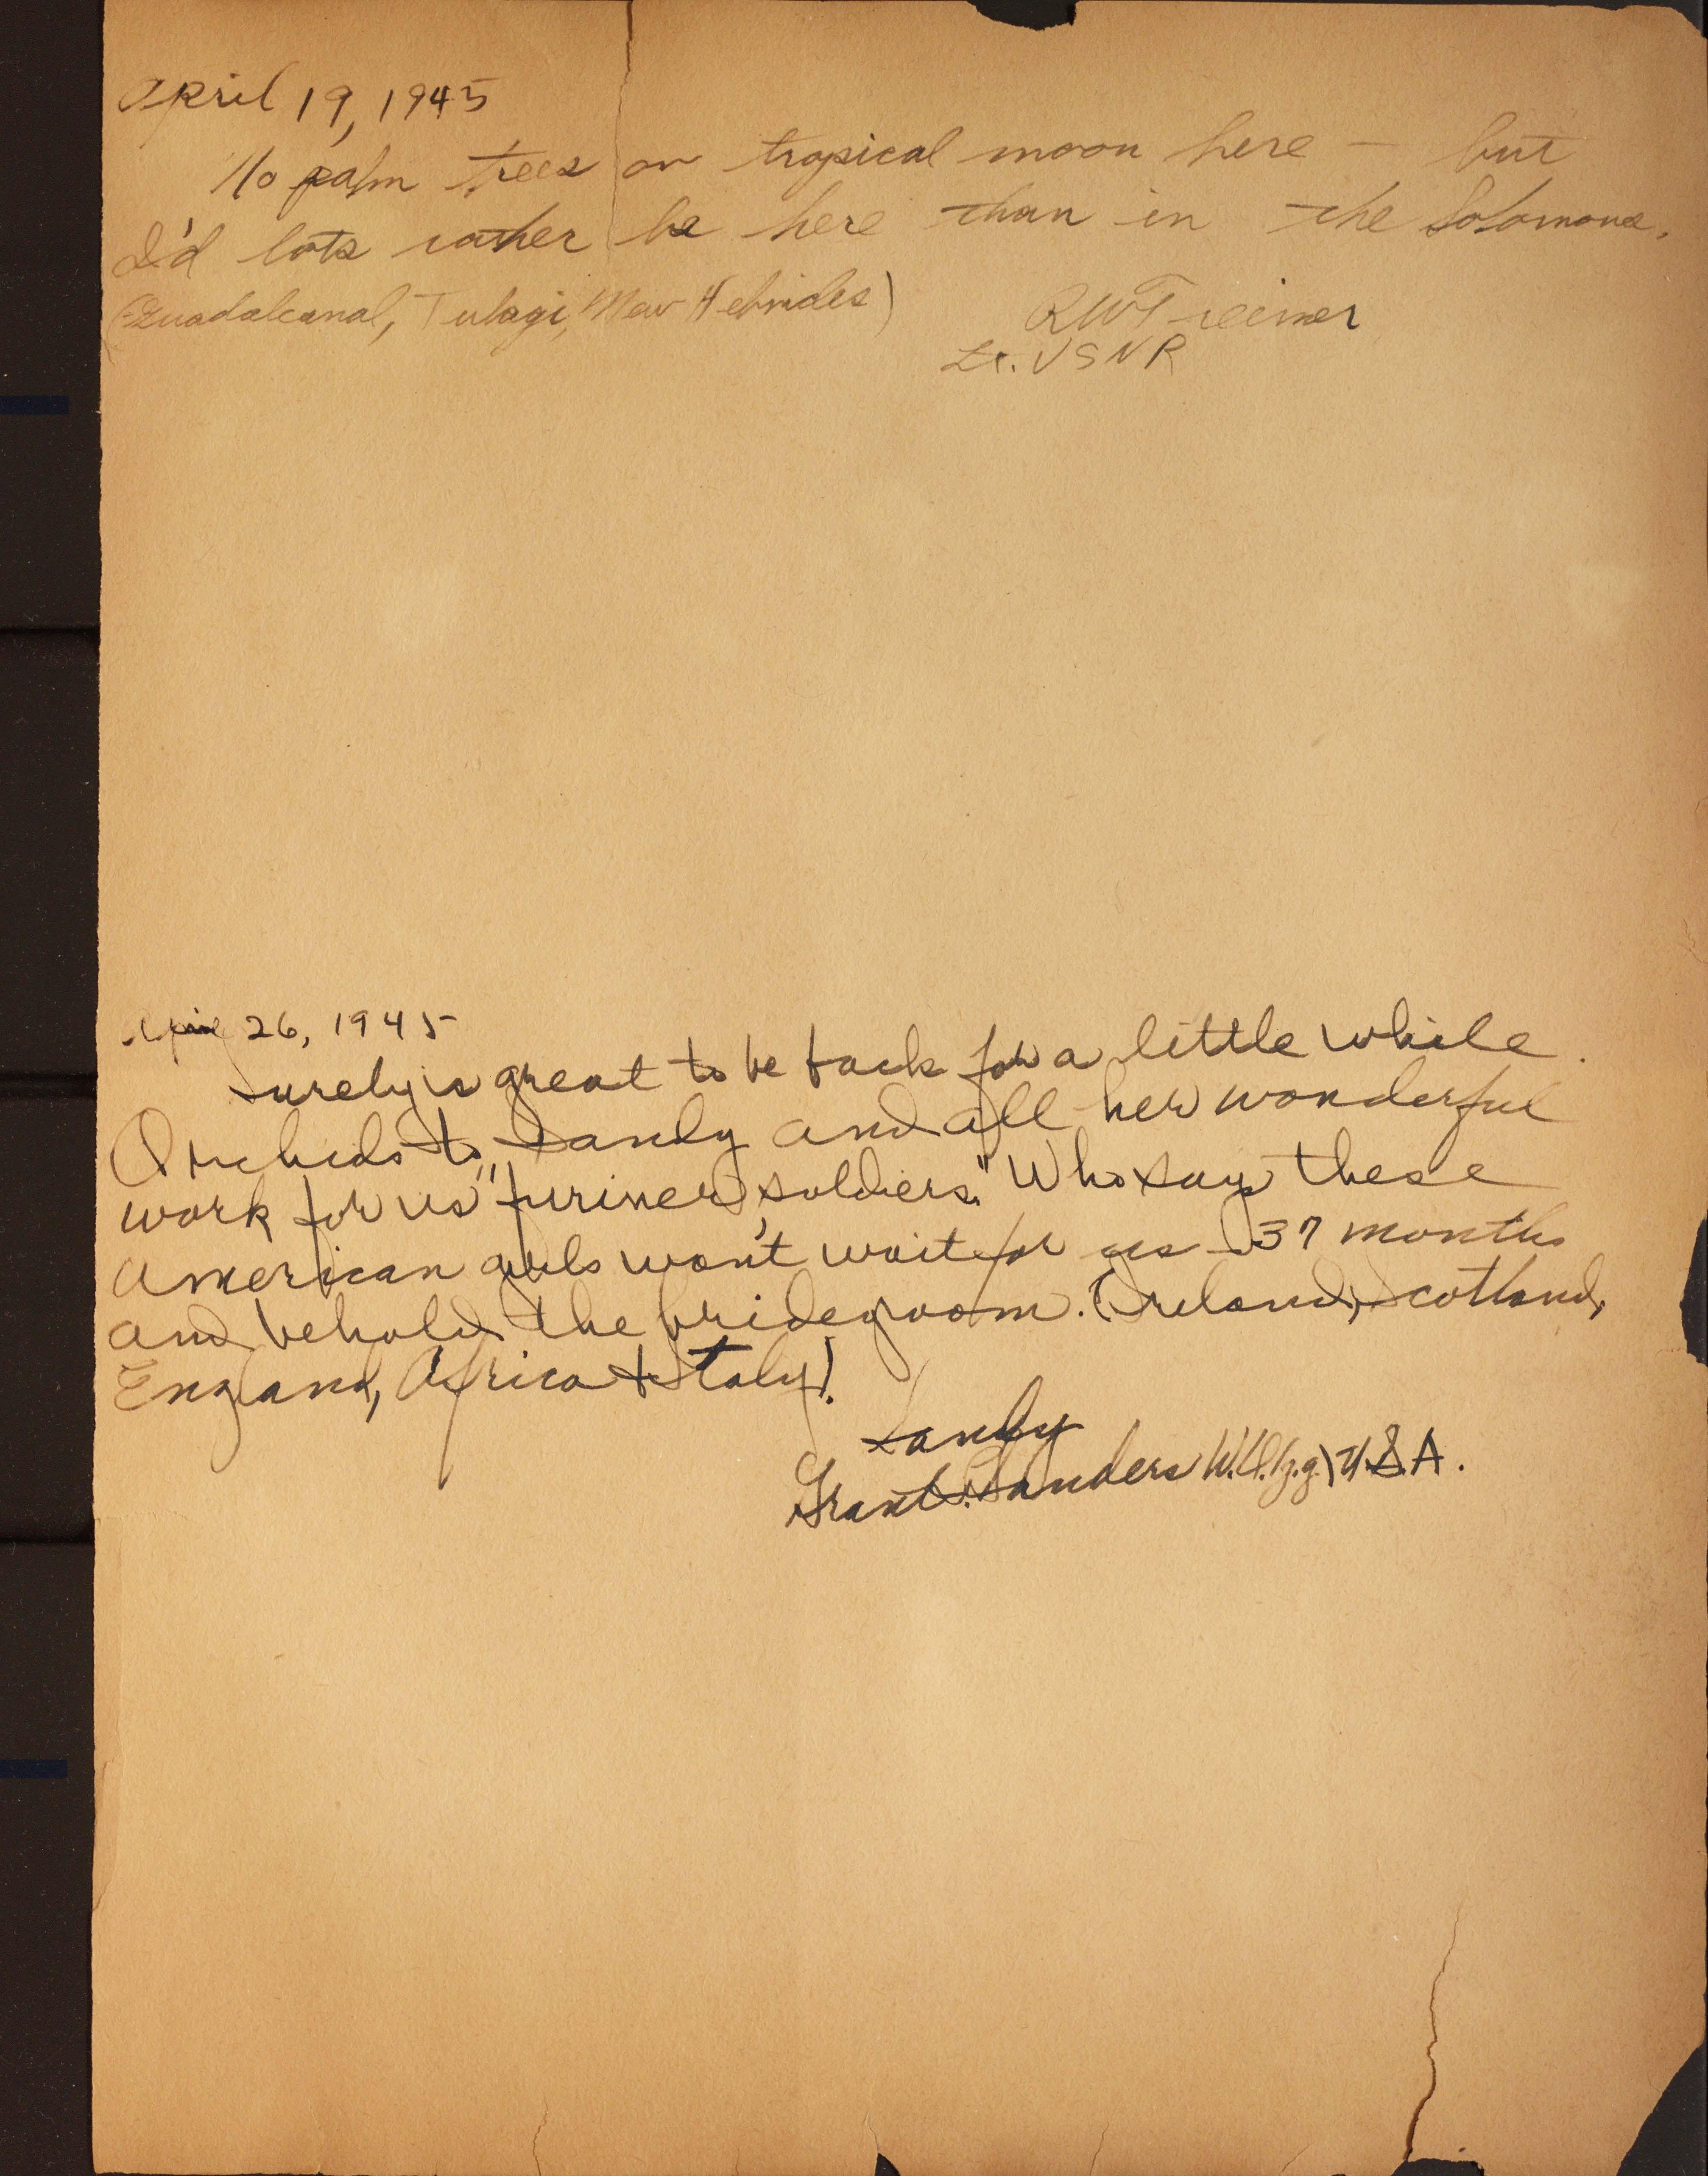 April 19, 1945
No palm trees or tropical moon here – but
I'd lots rather be here than in the Solomons.
(Guadalcanal, Tulagi, New Hebrides)
RW Treimer
Lt. USNR
April 26, 1945
Surely is great to be back for a little while.
Orchids to Sandy and all her wonderful
work for us "furiner soldiers." Who says these
American girls won't wait for us – 37 months
and behold the bridegroom. (Ireland, Scotland,
England, Africa & Italy).
Sandy
Grant Sanders W.O.(j.g.) U.S.A.